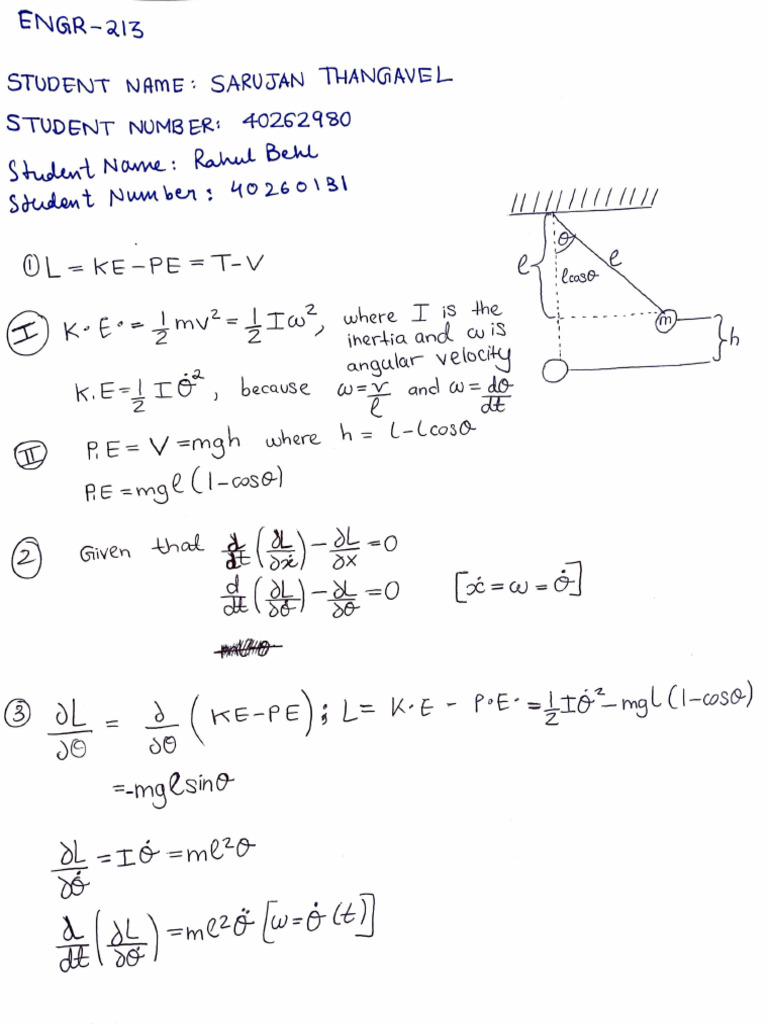 ENGR-213
STUDENT NAME: SARUJAN THANGAVEL
STUDENT NUMBER: 40262980
Student Name: Rahul Behl
Student Number: 40260131
① L = KE-PE = T-V
Ⓘ K.E. = 1/2 mv² = 1/2 Iω², where I is the
inertia and ω is
angular velocity
K.E = 1/2 I θ̇², because ω = v/l and ω = dθ/dt
II P.E = V = mgh where h = l-lcosθ
P.E = mgl(1-cosθ)
② Given that d/dt(∂L/∂ẋ) - ∂L/∂x = 0
d/dt(∂L/∂θ̇) - ∂L/∂θ = 0 [ẋ = ω = θ̇]
③ ∂L/∂θ = ∂/∂θ (KE-PE); L = K.E - P.E. = 1/2 Iθ̇² - mgl(1-cosθ)
= -mglsinθ
∂L/∂θ̇ = Iθ̇ = ml²θ
d/dt(∂L/∂θ̇) = ml²θ̈ [ω = θ̇(t)]
θ
l
l
lcosθ
m
h